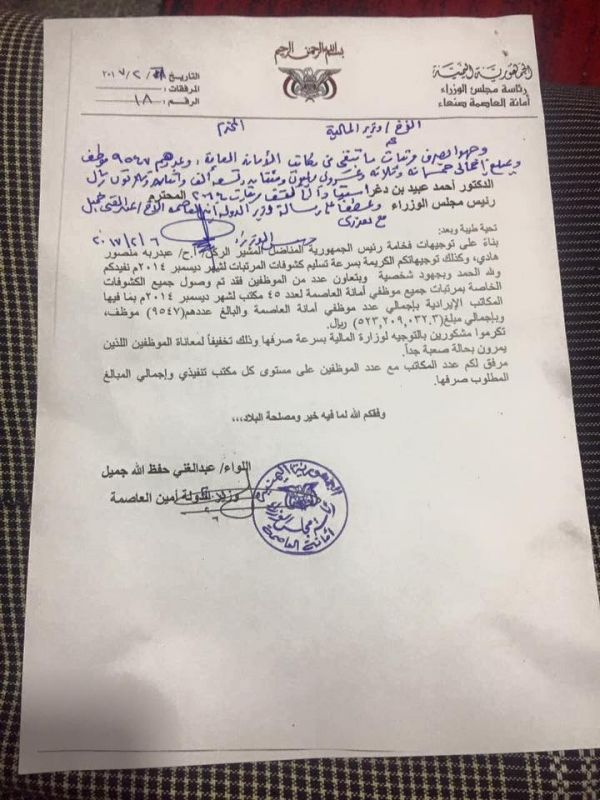 بسم الله الرحمن الرحيم
الجمهورية اليمنية
رئاسة مجلس الوزراء
أمانة العاصمة صنعاء
التاريخ / ٢ / ٢٠١٧
المرفقات:
الرقم: ١٨
الأخ/ وزير المالية المحترم
وجهوا بصرف مرتبات ما تبقى من مكاتب الأمانة العامة وعددهم ٩٥٤٧ موظف
وبمبلغ إجمالي خمسمائة وثلاثة وعشرون مليون ومئتان وتسعة ألف واثنان وثلاثون ريال
الدكتور أحمد عبيد بن دغر المحترم
رئيس مجلس الوزراء
وعطفاً على رسالة وزير الدولة أمين العاصمة الأخ عبدالغني جميل
مع
رئيس الوزراء
٢٠١٧/٢/٦
تحية طيبة وبعد:
بناءً على توجيهات فخامة رئيس الجمهورية المناضل المشير الركن/ عبدربه منصور
هادي، وكذلك توجيهاتكم الكريمة بسرعة تسليم كشوفات المرتبات لشهر ديسمبر ٢٠١٤م نفيدكم
ولله الحمد وبجهود شخصية وبتعاون عدد من الموظفين فقد تم وصول جميع الكشوفات
الخاصة بمرتبات جميع موظفي أمانة العاصمة لعدد ٤٥ مكتب لشهر ديسمبر ٢٠١٤م بما فيها
المكاتب الإيرادية بإجمالي عدد موظفي أمانة العاصمة والبالغ عددهم(٩٥٤٧) موظف،
وبإجمالي مبلغ(٥٢٣,٢٠٩,٠٣٢.٣) ريال.
تكرموا مشكورين بالتوجيه لوزارة المالية بسرعة صرفها وذلك تخفيفاً لمعاناة الموظفين اللذين
يمرون بحالة صعبة جداً.
مرفق لكم عدد المكاتب مع عدد الموظفين على مستوى كل مكتب تنفيذي وإجمالي المبالغ
المطلوب صرفها.
وفقكم الله لما فيه خير ومصلحة البلاد،،،
اللواء/ عبدالغني حفظ الله جميل
وزير الدولة أمين العاصمة
٦
الجمهورية اليمنية
رئاسة مجلس الوزراء
أمانة العاصمة